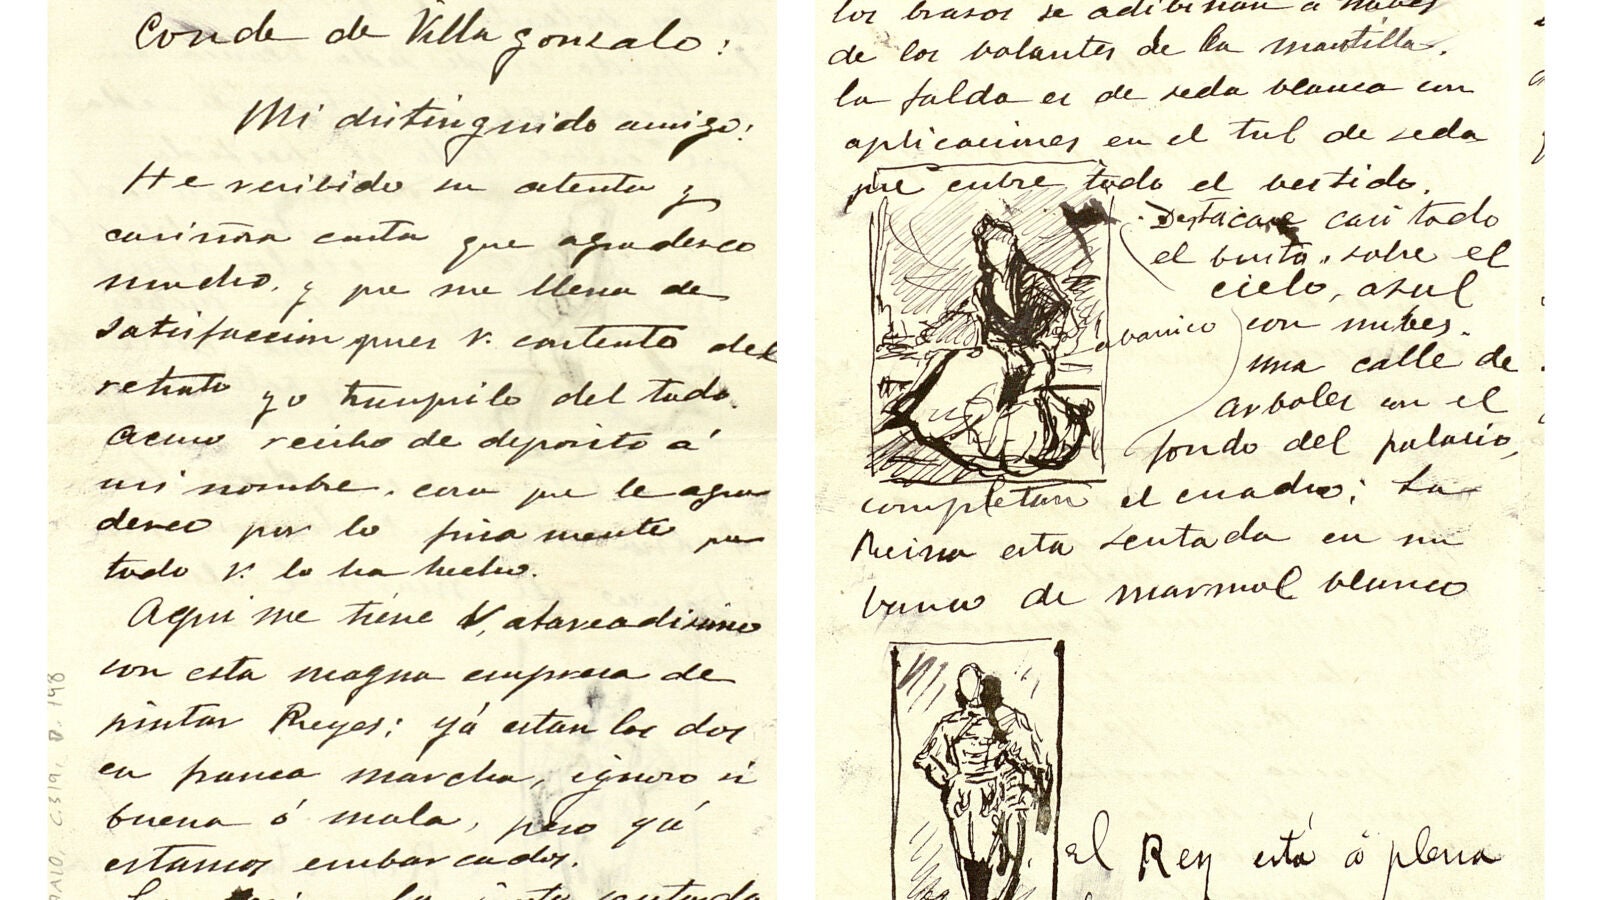 Conde de Villagonzalo:
Mi distinguido amigo:
He recibido su atenta y
cariñosa carta que agradesco
mucho, y que me llena de
satisfaccion pues V. contento del
retrato yo tranquilo del todo.
Acuso recibo de deposito á
mi nombre, cosa que le agra
desco por lo finamente que
todo V. lo ha hecho.
Aqui me tiene V. atareadisimo
con esta magna empresa de
pintar Reyes; yá estan los dos
en franca marcha, ignoro si
buena ó mala, pero yá
estamos embarcados.
la sentada
los brasos se adibinan a trabes
de los volantes de la mantilla.
la falda es de seda blanca con
aplicaciones en el tul de seda
que cubre todo el vestido.
Destacase casi todo
el busto, sobre el
cielo, asul
abanico con nubes.
una calle de
arboles con el
fondo del palacio,
completan el cuadro; La
Reina esta sentada en un
banco de marmol blanco
el Rey está á plena
D. 148